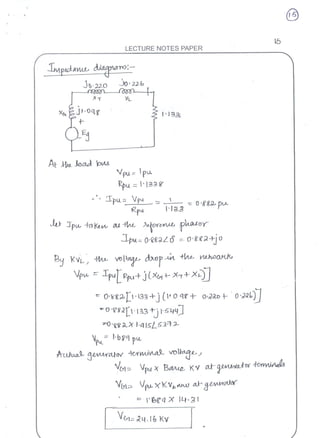 15
15
LECTURE NOTES PAPER
Impedance diagram:-
j0.220 j0.226
XT XL
XG j1.098
1.133
+
Eg
At the load bus
Vpu = 1pu
Rpu = 1.133Ω
∴ Ipu = Vpu / Rpu = 1 / 1.133 = 0.882 pu
Let Ipu taken as the reference phasor
Ipu = 0.882∠0 = 0.882+j0
By KVL, the voltage drop in the network
Vpu = Ipu[Rpu + j(XG + XT + XL)]
= 0.882[1.133 + j(1.098 + 0.220 + 0.226)]
= 0.882[1.133 + j1.544]
= 0.882 × 1.915∠53.72
Vpu = 1.689 pu
Actual generator terminal voltage,
VG = Vpu × Base KV at generator terminals
VG = Vpu × KVb,new at generator
= 1.689 × 14.31
VG = 24.16 KV